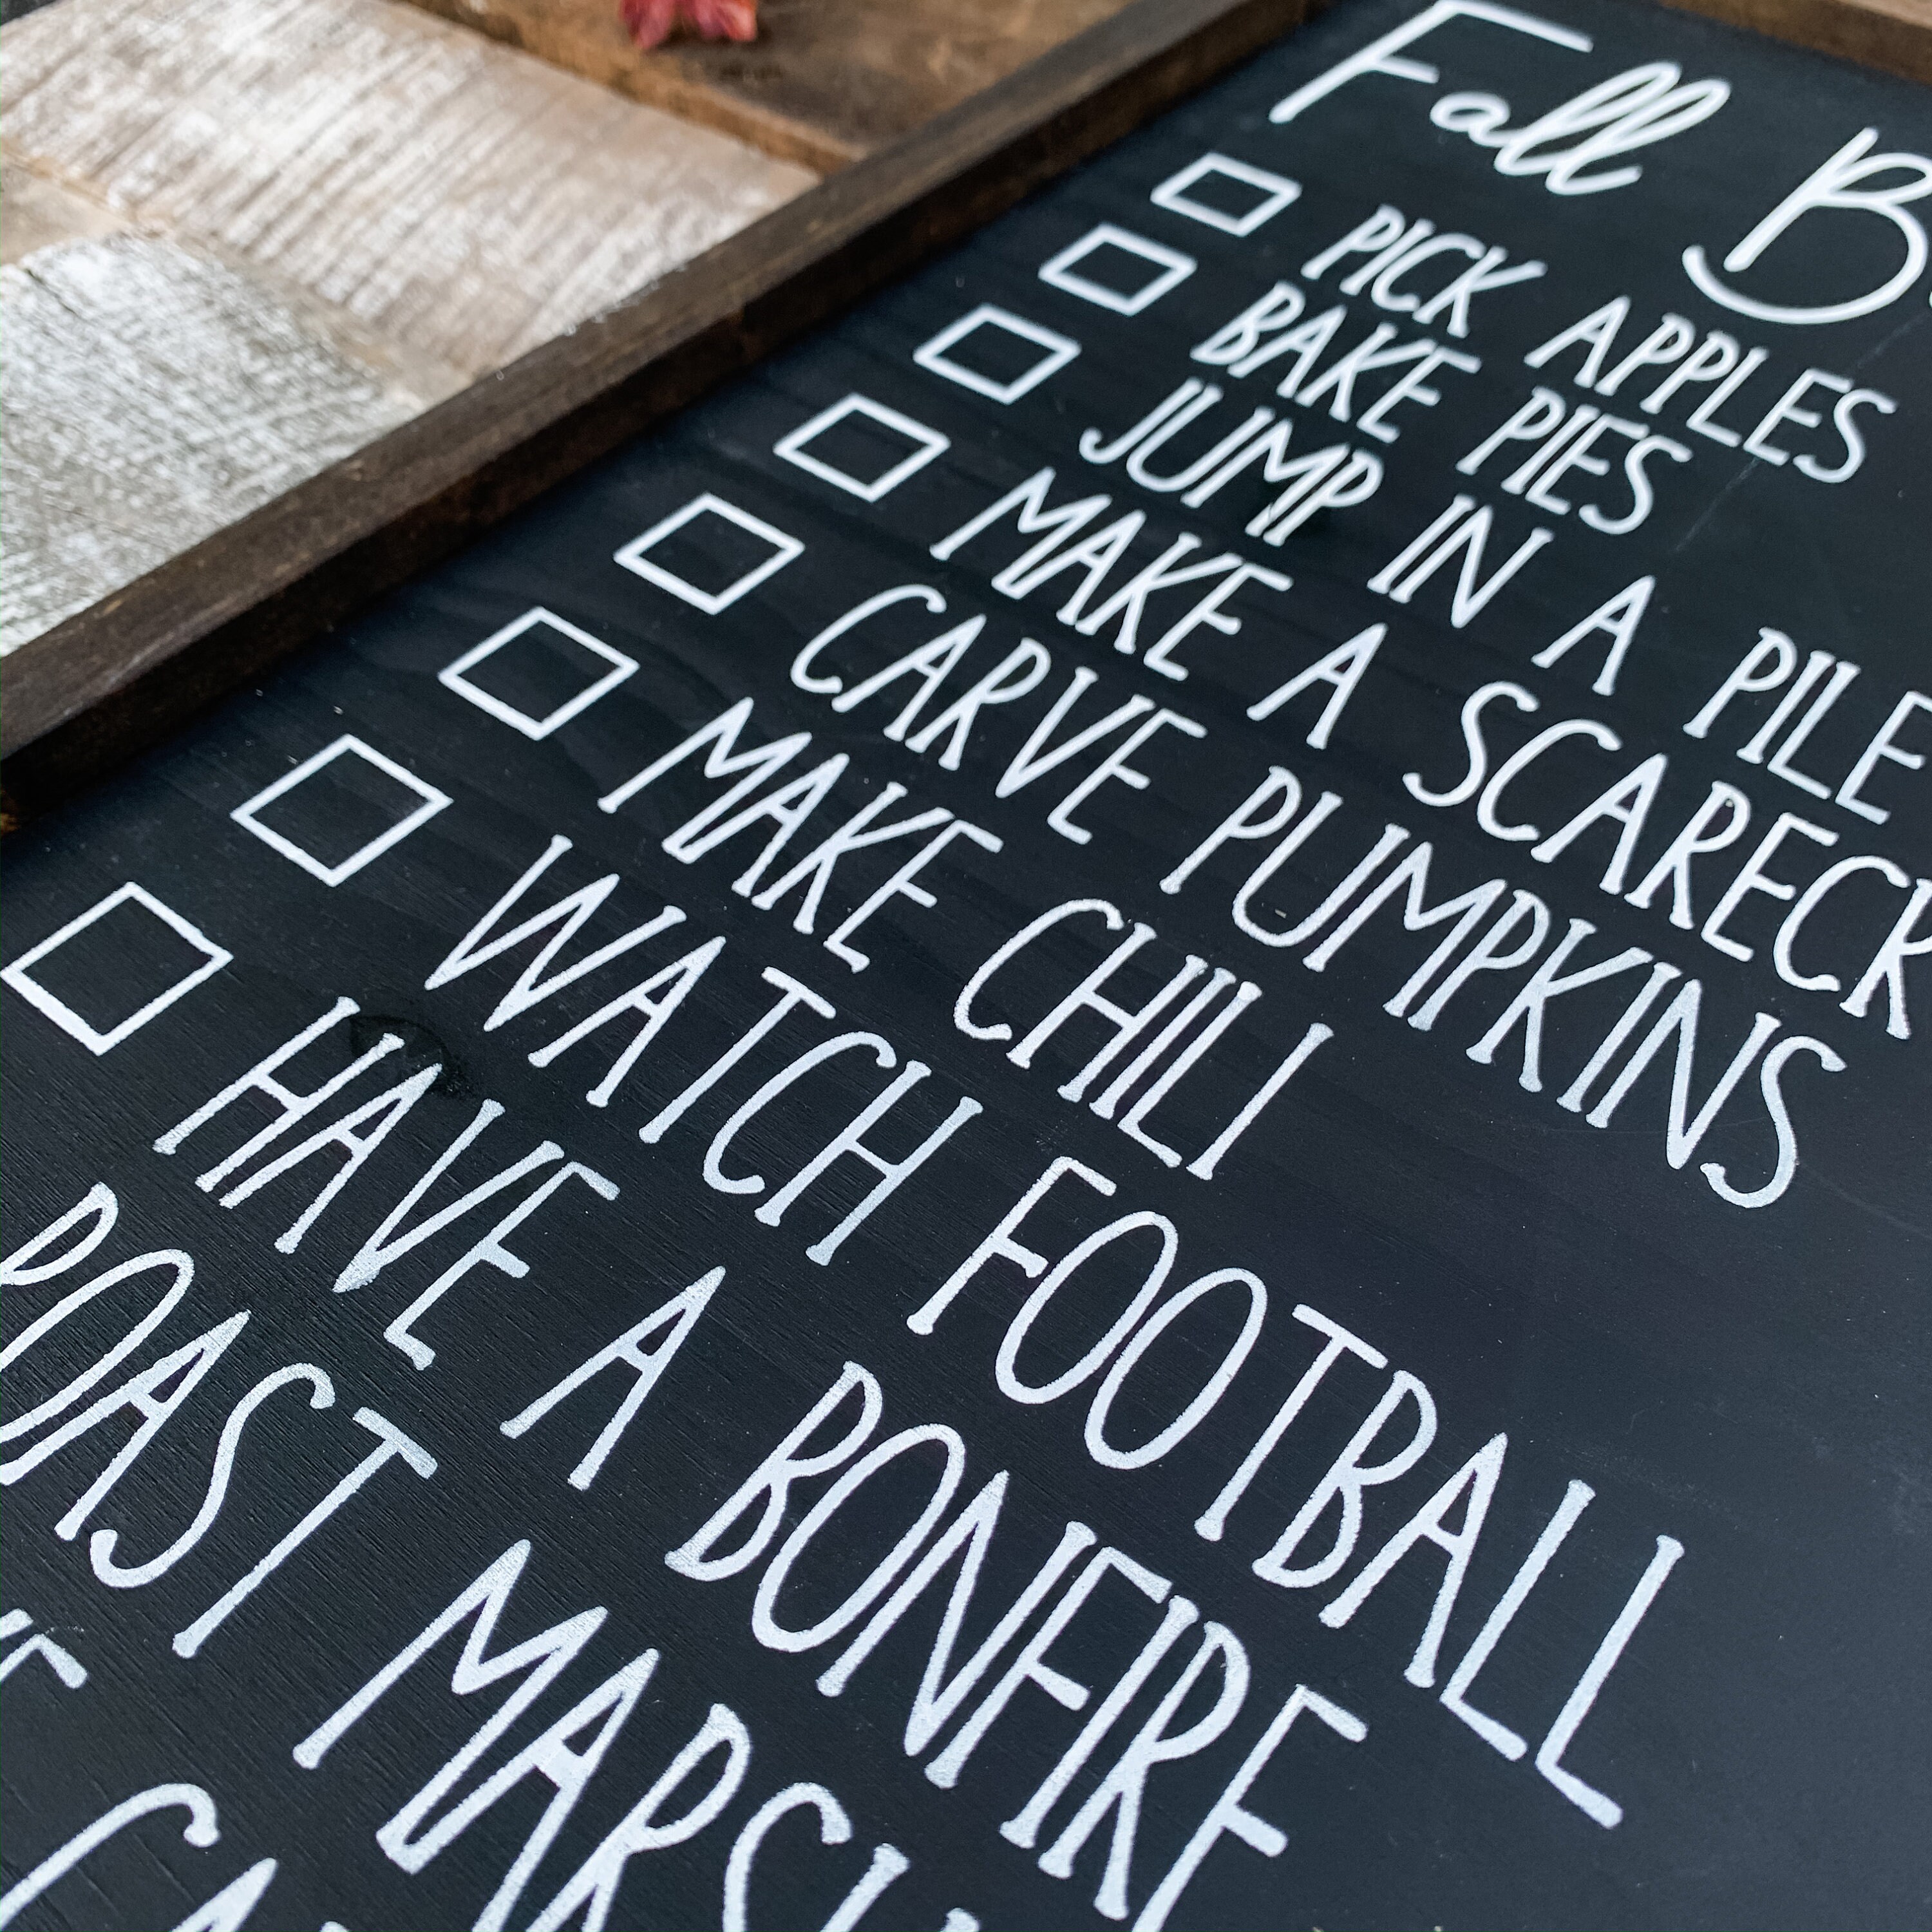 Fall B
PICK APPLES
BAKE PIES
JUMP IN A PILE
MAKE A SCARECR
CARVE PUMPKINS
MAKE CHILI
WATCH FOOTBALL
HAVE A BONFIRE
ROAST MARSH